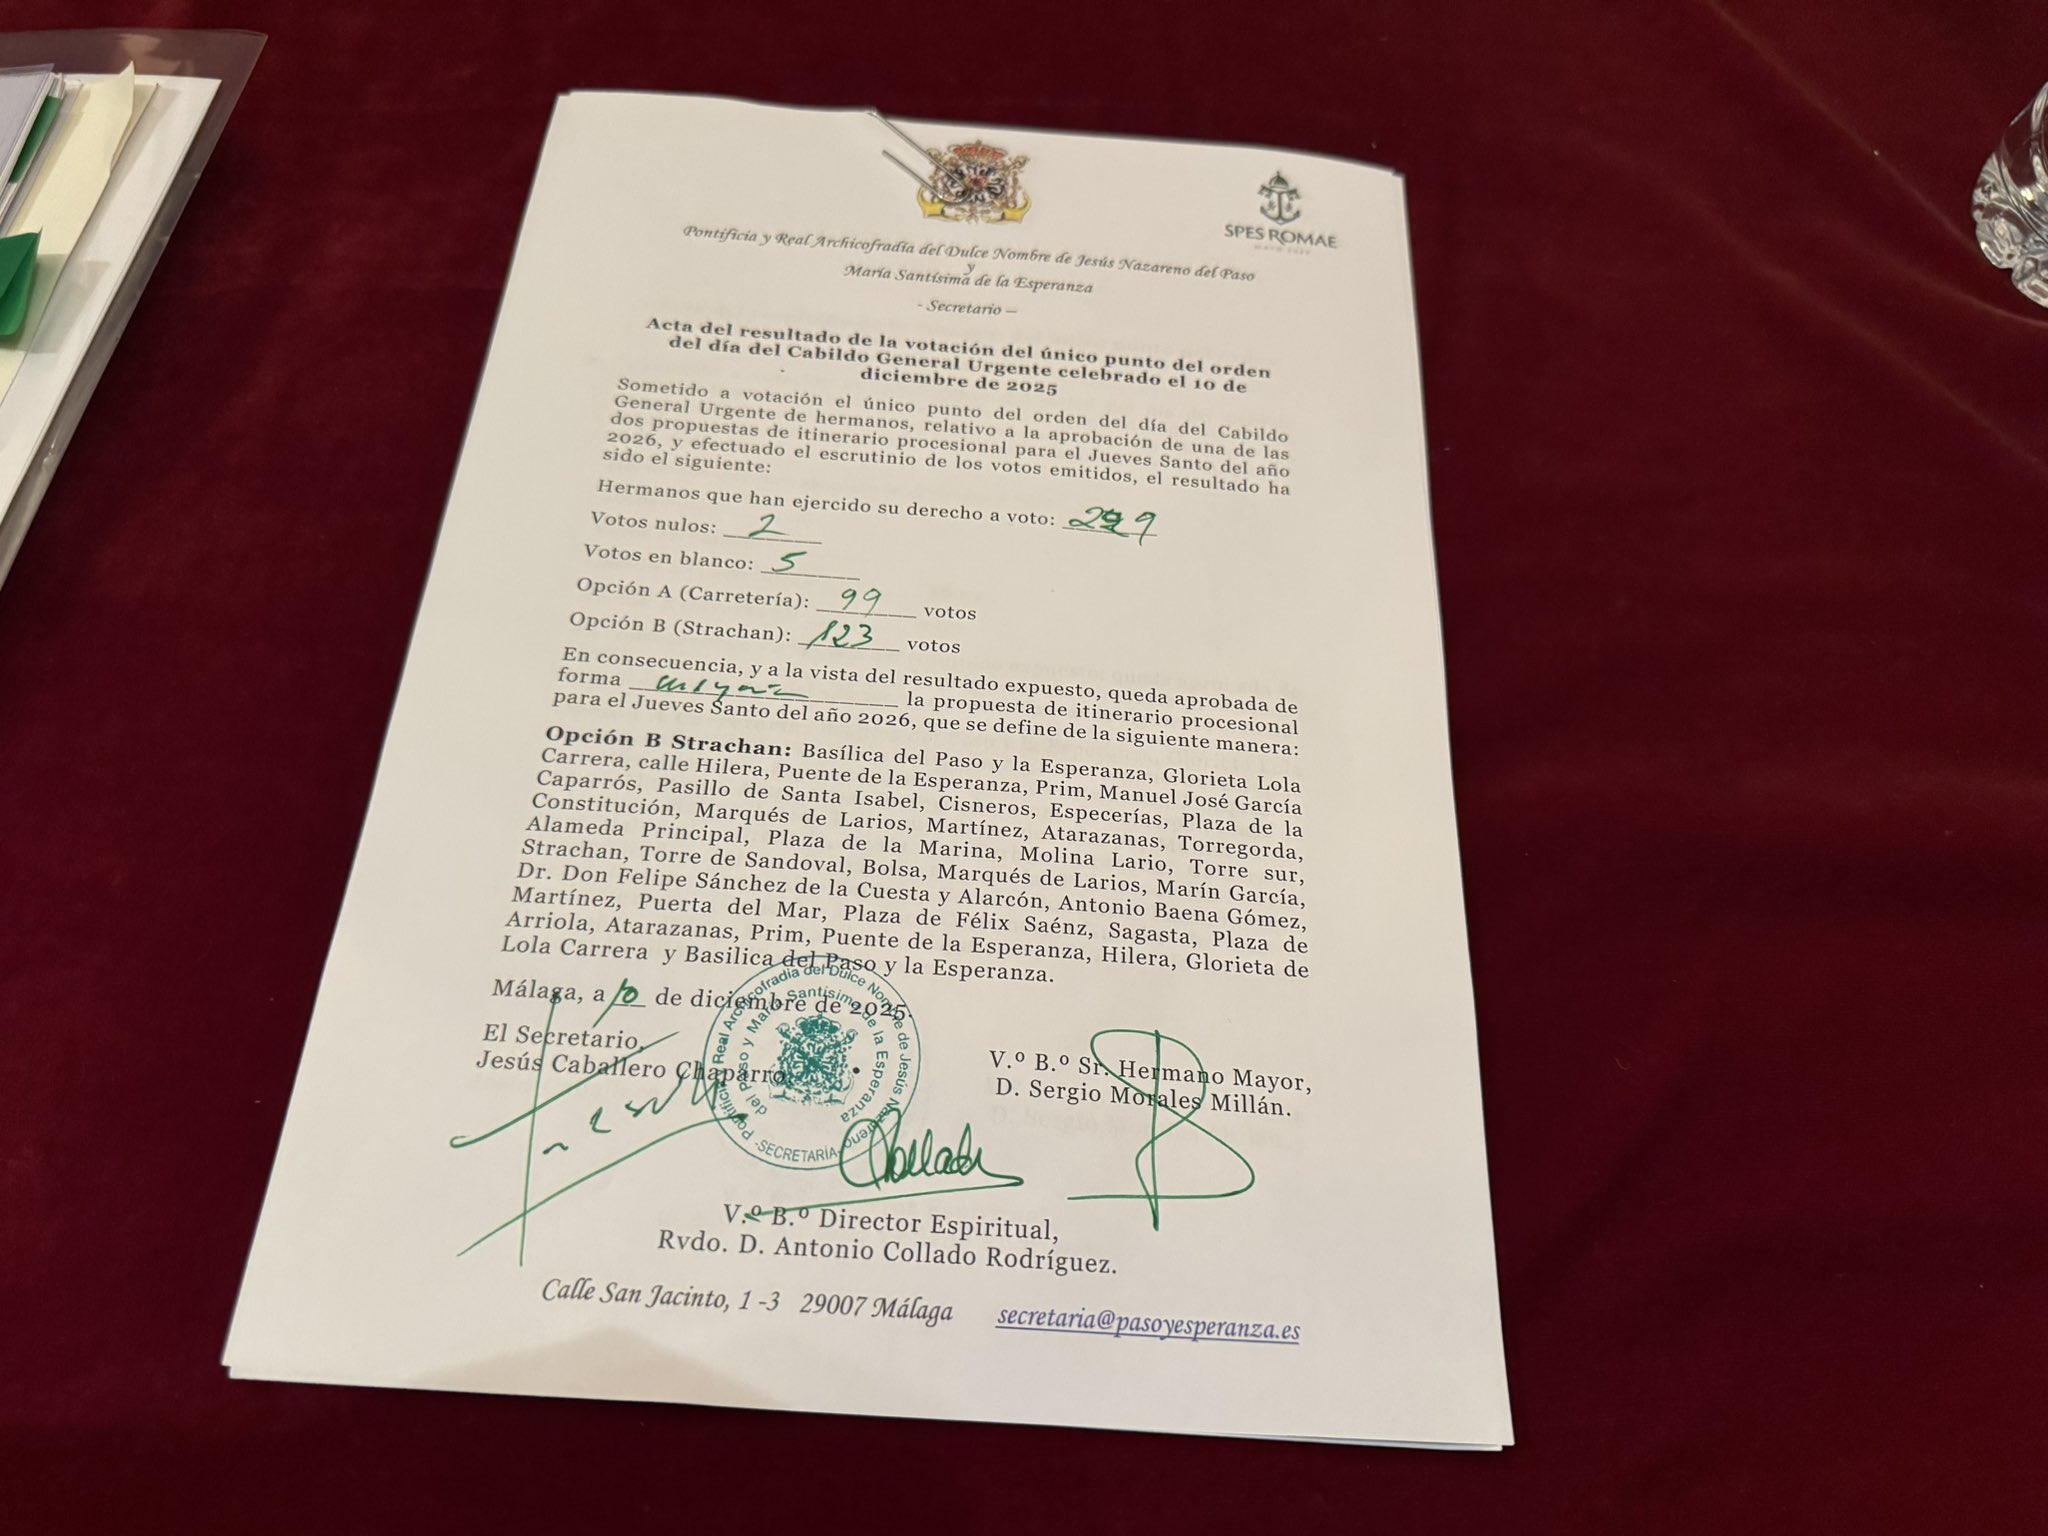 SPES ROMAE
Pontificia y Real Archicofradía del Dulce Nombre de Jesús Nazareno del Paso
y
María Santísima de la Esperanza
- Secretario –
Acta del resultado de la votación del único punto del orden
del día del Cabildo General Urgente celebrado el 10 de
diciembre de 2025
Sometido a votación el único punto del orden del día del Cabildo
General Urgente de hermanos, relativo a la aprobación de una de las
dos propuestas de itinerario procesional para el Jueves Santo del año
2026, y efectuado el escrutinio de los votos emitidos, el resultado ha
sido el siguiente:
Hermanos que han ejercido su derecho a voto: 229
Votos nulos: 2
Votos en blanco: 5
Opción A (Carretería): 99 votos
Opción B (Strachan): 123 votos
En consecuencia, y a la vista del resultado expuesto, queda aprobada de
forma la propuesta de itinerario procesional
para el Jueves Santo del año 2026, que se define de la siguiente manera:
Opción B Strachan: Basílica del Paso y la Esperanza, Glorieta Lola
Carrera, calle Hilera, Puente de la Esperanza, Prim, Manuel José García
Caparrós, Pasillo de Santa Isabel, Cisneros, Especerías, Plaza de la
Constitución, Marqués de Larios, Martínez, Atarazanas, Torregorda,
Alameda Principal, Plaza de la Marina, Molina Lario, Torre sur,
Strachan, Torre de Sandoval, Bolsa, Marqués de Larios, Marín García,
Dr. Don Felipe Sánchez de la Cuesta y Alarcón, Antonio Baena Gómez,
Martínez, Puerta del Mar, Plaza de Félix Saénz, Sagasta, Plaza de
Arriola, Atarazanas, Prim, Puente de la Esperanza, Hilera, Glorieta de
Lola Carrera y Basilica del Paso y la Esperanza.
Málaga, a 10 de diciembre de 2025.
El Secretario,
Jesús Caballero Chaparro.
V.º B.º Sr. Hermano Mayor,
D. Sergio Morales Millán.
Pontificia y Real Archicofradía del Dulce Nombre de Jesús Nazareno
del Paso y María Santísima de la Esperanza
-SECRETARÍA-
Collado
V.º B.º Director Espiritual,
Rvdo. D. Antonio Collado Rodríguez.
Calle San Jacinto, 1 -3 29007 Málaga secretaria@pasoyesperanza.es